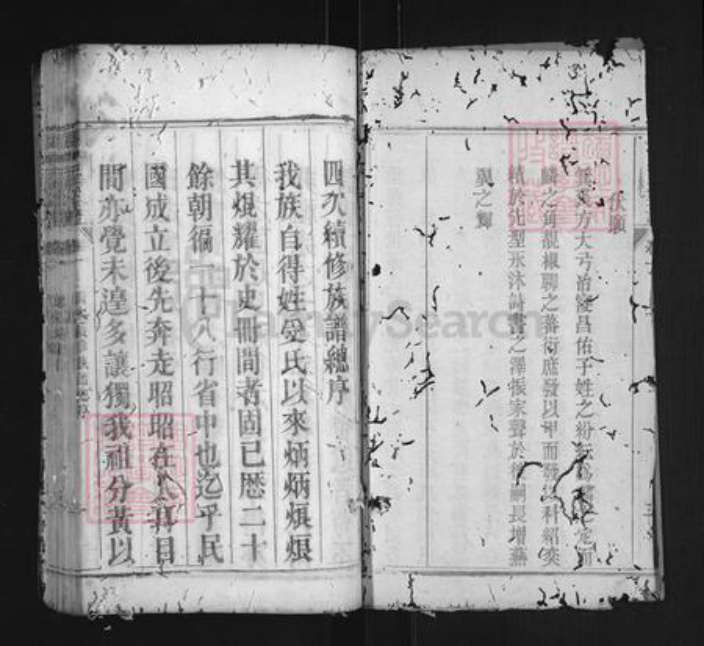 伏願
方大 昌佑子姓之紛
麟之角 椒聊之蕃衍庶發以甲而發以科紹奕
績於先型永沐詩書之澤振家聲於後嗣長增燕
翼之輝
四次續修族譜總序
我族自得姓受氏以來炳炳烺烺
其焜耀於史冊間者固已歷二十
餘朝徧一十八行省中也迄乎民
國成立後先奔走昭昭在人耳目
間亦覺未遑多讓獨我祖分黃以
FamilySearch